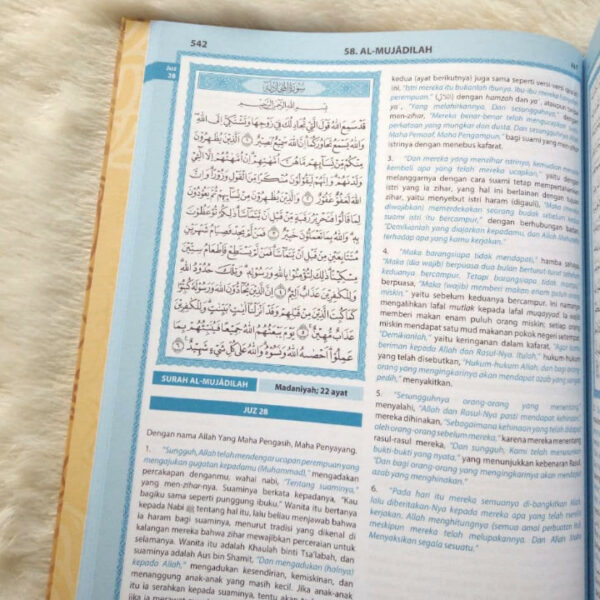 542
58. AL-MUJĀDILAH
Juz
28
سورة المجادلة
بسم الله الرحمن الرحيم
قد سمع الله قول التي تجادلك في زوجها وتشتكي إلى الله
والله يسمع تحاوركما إن الله سميع بصير ١ الذين يظهرون
منكم من نسائهم ما هن أمهتهم إن أمهتهم إلا الئي
ولدنهم وإنهم ليقولون منكرا من القول وزورا وإن
الله لعفو غفور ٢ والذين يظهرون من نسائهم ثم يعودون
لما قالوا فتحرير رقبة من قبل أن يتماسا ذلكم توعظون
به والله بما تعملون خبير ٣ فمن لم يجد فصيام شهرين
متتابعين من قبل أن يتماسا فمن لم يستطع فإطعام ستين
مسكينا ذلك لتؤمنوا بالله ورسوله وتلك حدود الله
وللكفرين عذاب أليم ٤ إن الذين يحادون الله ورسوله كبتوا
كما كبت الذين من قبلهم وقد أنزلنا ءايت بينت وللكفرين
عذاب مهين ٥ يوم يبعثهم الله جميعا فينبئهم بما
عملوا أحصىه الله ونسوه والله على كل شيء شهيد ٦
SURAH AL-MUJĀDILAH
Madaniyah; 22 ayat
JUZ 28
Dengan nama Allah Yang Maha Pengasih, Maha Penyayang.
1. "Sungguh, Allah telah mendengar ucapan perempuan yang
mengajukan gugatan kepadamu (Muhammad)," mengadakan
percakapan denganmu, wahai nabi, "Tentang suaminya,"
yang men-zihar-nya. Suaminya berkata kepadanya, "Kau
bagiku sama seperti punggung ibuku." Wanita itu bertanya
kepada Nabi ﷺ tentang hal itu, lalu beliau menjawab bahwa
ia haram bagi suaminya, menurut tradisi yang dikenal di
kalangan mereka bahwa zihar mewajibkan perceraian untuk
selamanya. Wanita itu adalah Khaulah binti Tsa'labah, dan
suaminya adalah Aus bin Shamit, "Dan mengadukan (halnya)
kepada Allah," mengadukan kesendirian, kemiskinan, dan
menanggung anak-anak yang masih kecil. Jika anak-anak
itu ia serahkan kepada suaminya, tentu akan
jika ia merawat
kedua (ayat berikutnya) juga sama seperti versi-versi
ini, "Istri mereka itu bukanlah ibunya. Ibu-ibu mereka
perempuan," dengan hamzah dan ya', ataupun tanpa
ya', "Yang melahirkannya. Dan sesungguhnya," dengan
men-zihar, "Mereka benar-benar telah mengucapkan
perkataan yang mungkar dan dusta. Dan sesungguhnya Allah
Maha Pemaaf, Maha Pengampun," bagi suami yang men-zihar
istrinya dengan menebus kafarat.
3. "Dan mereka yang menzihar istrinya, kemudian menarik
kembali apa yang telah mereka ucapkan," yaitu dengan
melanggarnya dengan cara suami tetap mempertahankan
istri yang ia zihar, yang hal ini berlainan dengan tujuan
zihar, yaitu menyebut istri haram (digauli), "Maka (mereka
diwajibkan) memerdekakan seorang budak sebelum kedua
suami istri itu bercampur," dengan berhubungan badan.
"Demikianlah yang diajarkan kepadamu, dan Allah Mahateliti
terhadap apa yang kamu kerjakan."
4. "Maka barangsiapa tidak mendapatkan," hamba sahaya,
"Maka (dia wajib) berpuasa dua bulan berturut-turut sebelum
keduanya bercampur. Tetapi barangsiapa tidak mampu,"
berpuasa, "Maka (wajib) memberi makan enam puluh orang
miskin," yaitu sebelum keduanya bercampur. Ini namanya
mengalihkan lafal mutlak kepada lafal muqayyad. Ia wajib
memberi makan enam puluh orang miskin; setiap orang
miskin mendapat satu mud makanan pokok negeri setempat.
"Demikianlah," yaitu keringanan dalam kafarat, "Agar kamu
beriman kepada Allah dan Rasul-Nya. Itulah," hukum-hukum
yang telah disebutkan, "Hukum-hukum Allah, dan bagi orang-
orang yang mengingkarinya akan mendapat azab yang sangat
pedih," menyakitkan.
5. "Sesungguhnya orang-orang yang menentang,"
menyalahi, "Allah dan Rasul-Nya pasti mendapat kehinaan,"
mereka dihinakan, "Sebagaimana kehinaan yang telah didapat
oleh orang-orang sebelum mereka," karena mereka menentang
rasul-rasul mereka, "Dan sungguh, Kami telah menurunkan
bukti-bukti yang nyata," yang menunjukkan kebenaran Rasul,
"Dan bagi orang-orang yang mengingkarinya akan mendapat
azab yang menghinakan."
6. "Pada hari itu mereka semuanya di-bangkitkan Allah,
lalu diberitakan-Nya kepada mereka apa yang telah mereka
kerjakan. Allah menghitungnya (semua amal perbuatan itu)
meskipun mereka telah melupakannya. Dan Allah Maha
Menyaksikan segala sesuatu."